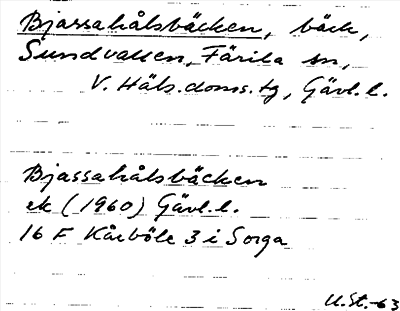 Bjassahålsbäcken, bäck,
Sundvallen, Färila sn,
V. Häls. doms. tg, Gävl. l.
Bjassahålsbäcken
ek (1960) Gävl. l.
16 F Kårböle 3 i Sorga
U. St. -63